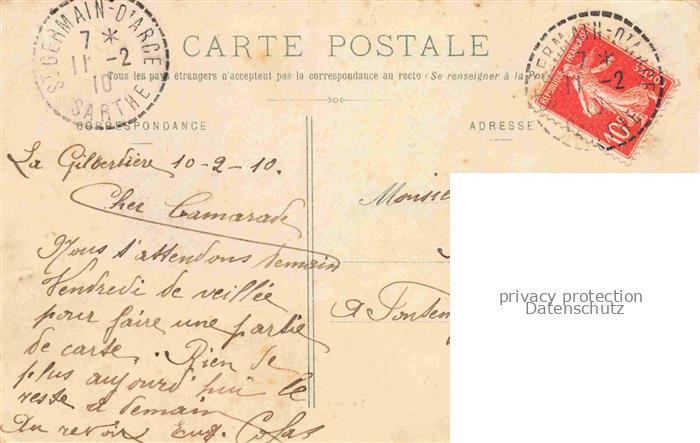 CARTE POSTALE
Tous les pays étrangers n'acceptent pas la correspondance au recto (Se renseigner à la Pos
CORRESPONDANCE
ADRESSE
ST GERMAIN-D'ARCE
7 *
11 -2
10
SARTHE
GERMAIN-D'A
7 *
11 -2
10
REPUBLIQUE FRANÇAISE
POSTES
10c
La Gilberdière 10-2-10.
Cher Camarade
Nous t'attendons demain
Vendredi de veillée
pour faire une partie
de carte. Rien de
plus aujourd'hui le
reste a demain
Au revoir Eug.
Monsie
A Fonten
privacy protection
Datenschutz